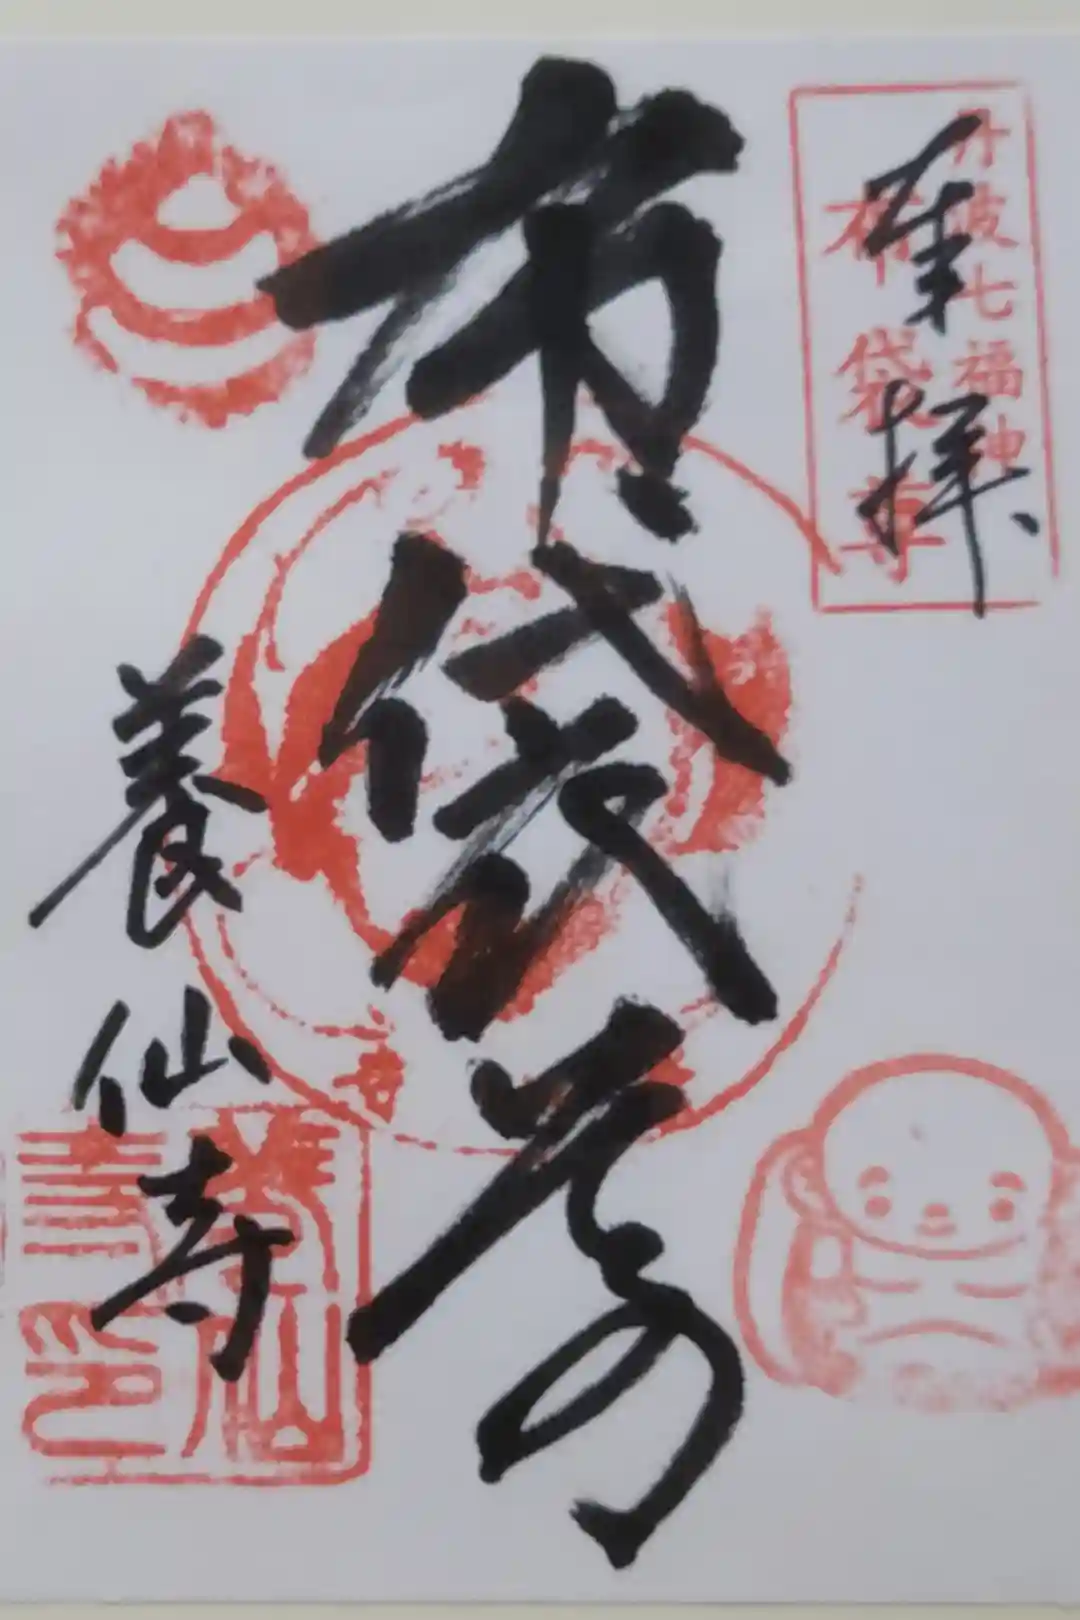 奉拝
丹波七福神
布袋尊
布袋尊
養仙寺
養仙寺印